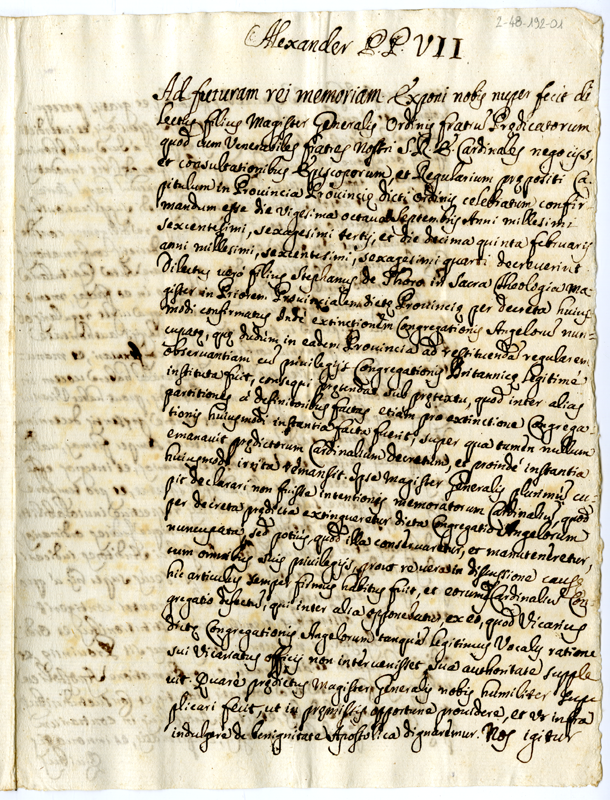 2-48-192-01
Alexander P.P. VII
Ad futuram rei memoriam Exponi nobis nuper fecit di
lectus filius Magister Generalis Ordinis fratrũ Prędicatorum
quod cum Venerabiles fratres Nostri S.R.E. Cardinales negocijs,
et consultationibus Episcoporum et Regularium prępositi Ca
pitulum in Provincia Provincię dicti ordinis celebratum confir
mandum esse die vigesima octava Septembris Anni millesimi
sexcentesimi, sexagesimi tertij, et die decima quinta februarij
anni millesimi, sexcentesimi, sexagesimi quarti decreverint
Dilectus verò filius Stephanus de Thoro in Sacra theologia Ma
gister in Priorem Provincialem dictę Provincię per decreta huius
modi confirmatus Inde extinctionem Congregationis Angelorũ nun=
cupatę, quę dudum in eadem Provincia ad restituendã regularem
observantiam cũ privilegijs Congregationis Britannicę legitimè
instituta fuit, consequi prętendat sub prętextu, quod inter alias
partitiones à definitoribus factas etiam pro extinctione Congrega
tionis huiusmodi instantia facta fuerit, super qua tamen nullum
emanavit prędictorum Cardinalium decretum, et proinde instantia
huiusmodi irrita remansit. Ipse Magister Generalis plurimũ cu-
pit declarari non fuisse intentionis memoratorum Cardinaliũ, quod
per decreta prędicta extingueretur dicta Congregatio Angelorum
nuncupata, sed potius, quod illa conservaretur, et manuteneretur,
cum omnibus suis privilegijs, prout revera in discussione causę
hic articulus semper firmus habitus fuit, et eorum Cardinaliũ Con
gregatio defectũ, qui inter alia opponebatur, ex eo, quod Vicarius
dictę Congregationis Angelorum tanquã legitimus Vocalis ratione
sui Vicariatus officij non intervenisset sua authoritate supple
vit. Quare prędictus Magister Generalis nobis humiliter suppe
plicari fecit, ut in pręmissis opportune providere, et ut infra
indulgere de benignitate Apostolica dignaremur. Nos igitur